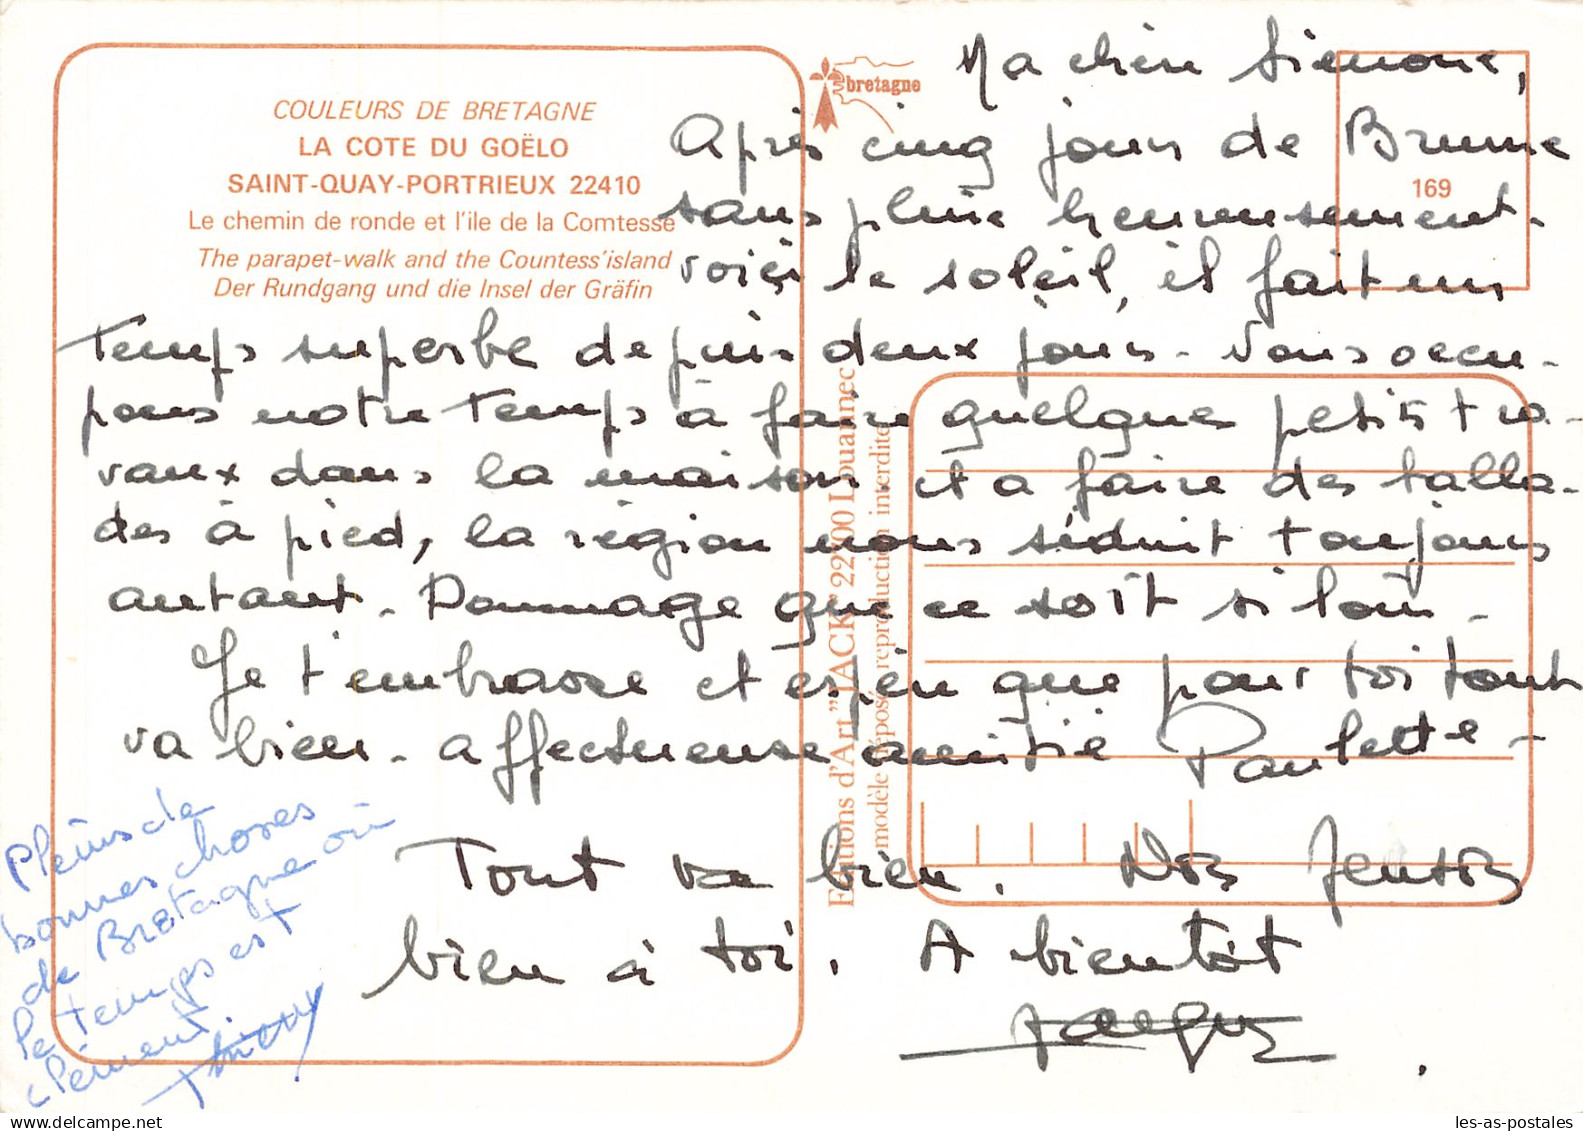 COULEURS DE BRETAGNE
LA COTE DU GOËLO
SAINT-QUAY-PORTRIEUX 22410
Le chemin de ronde et l'ile de la Comtesse
The parapet-walk and the Countess'island
Der Rundgang und die Insel der Gräfin
bretagne
169
Editions d'Art "JACK" 22700 Louannec
modèle déposé reproduction interdite
Ma chère Simone,
Après cinq jours de Brume
sans pluie heureusement -
voici le soleil, il fait un
Temps superbe depuis deux jours - Nous occu-
pons notre Temps à faire quelques petits tra-
vaux dans la maison et a faire des balla-
des à pied, la région nous séduit toujours
autant - Dommage que ce soit si loin -
Je t'embrasse et espère que pour toi tout
va bien - affectueuse amitié Paulette -
Tout va bien. Nos pensons
bien à toi. A bientôt
Jacques
Pleins de
bonnes choses
de Bretagne où
le temps est
clément.
Thierry
les-as-postales